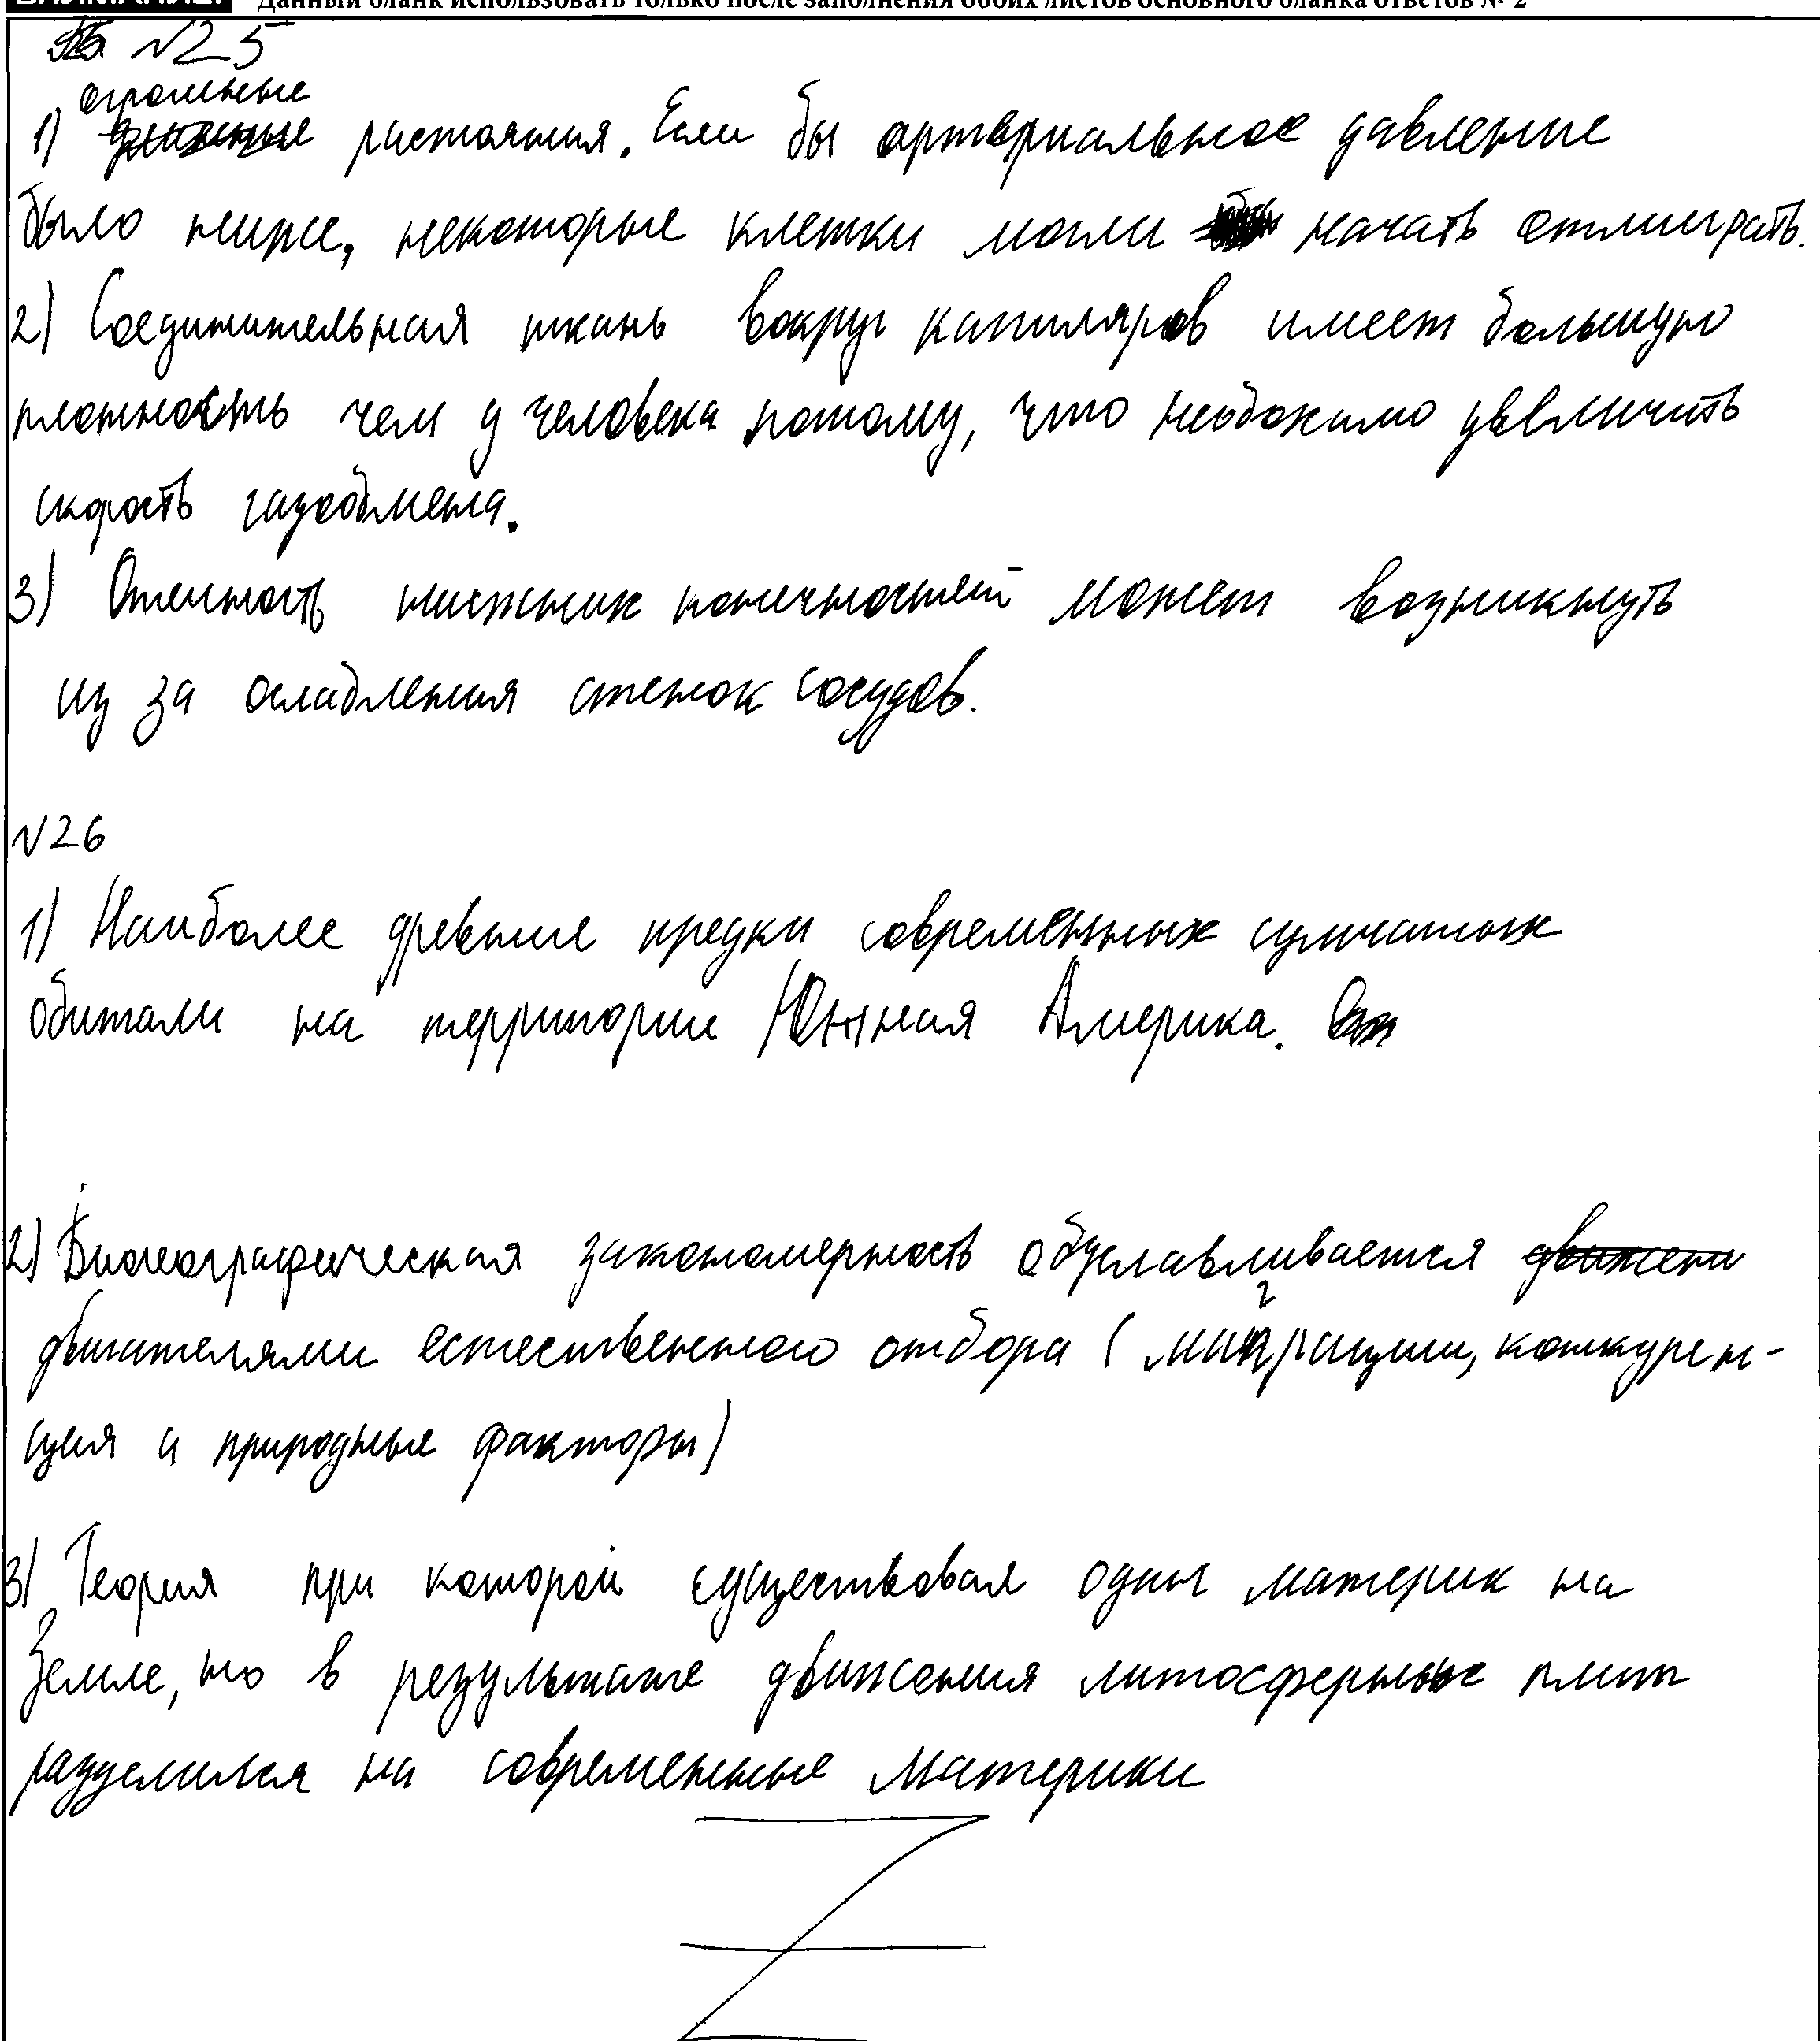 Данный бланк использовать только после заполнения обоих листов основного бланка ответов № 2
№25
огромные
1) растояния. Если бы артериальное давление
было ниже, некоторые клетки могли начать отмирать.
2) Соединительная ткань вокруг капиляров имеет большую
плотность чем у человека потому, что необхокимо увеличить
скорость газообмена.
3) Отечность нижних конечностей может возникнуть
из за ослабления стенок сосудов.
№26
1) Наиболее древние предки современных сумчатых
обитали на территории Южная Америка.
2) Биогеографическая закономерность обуславливается движени
двигателями естественного отбора (миграции, конкурен-
ция и природные факторы)
3) Теория при которой существовал один материк на
Земле, но в результате движения литосферные плиты
разделился на современные материки